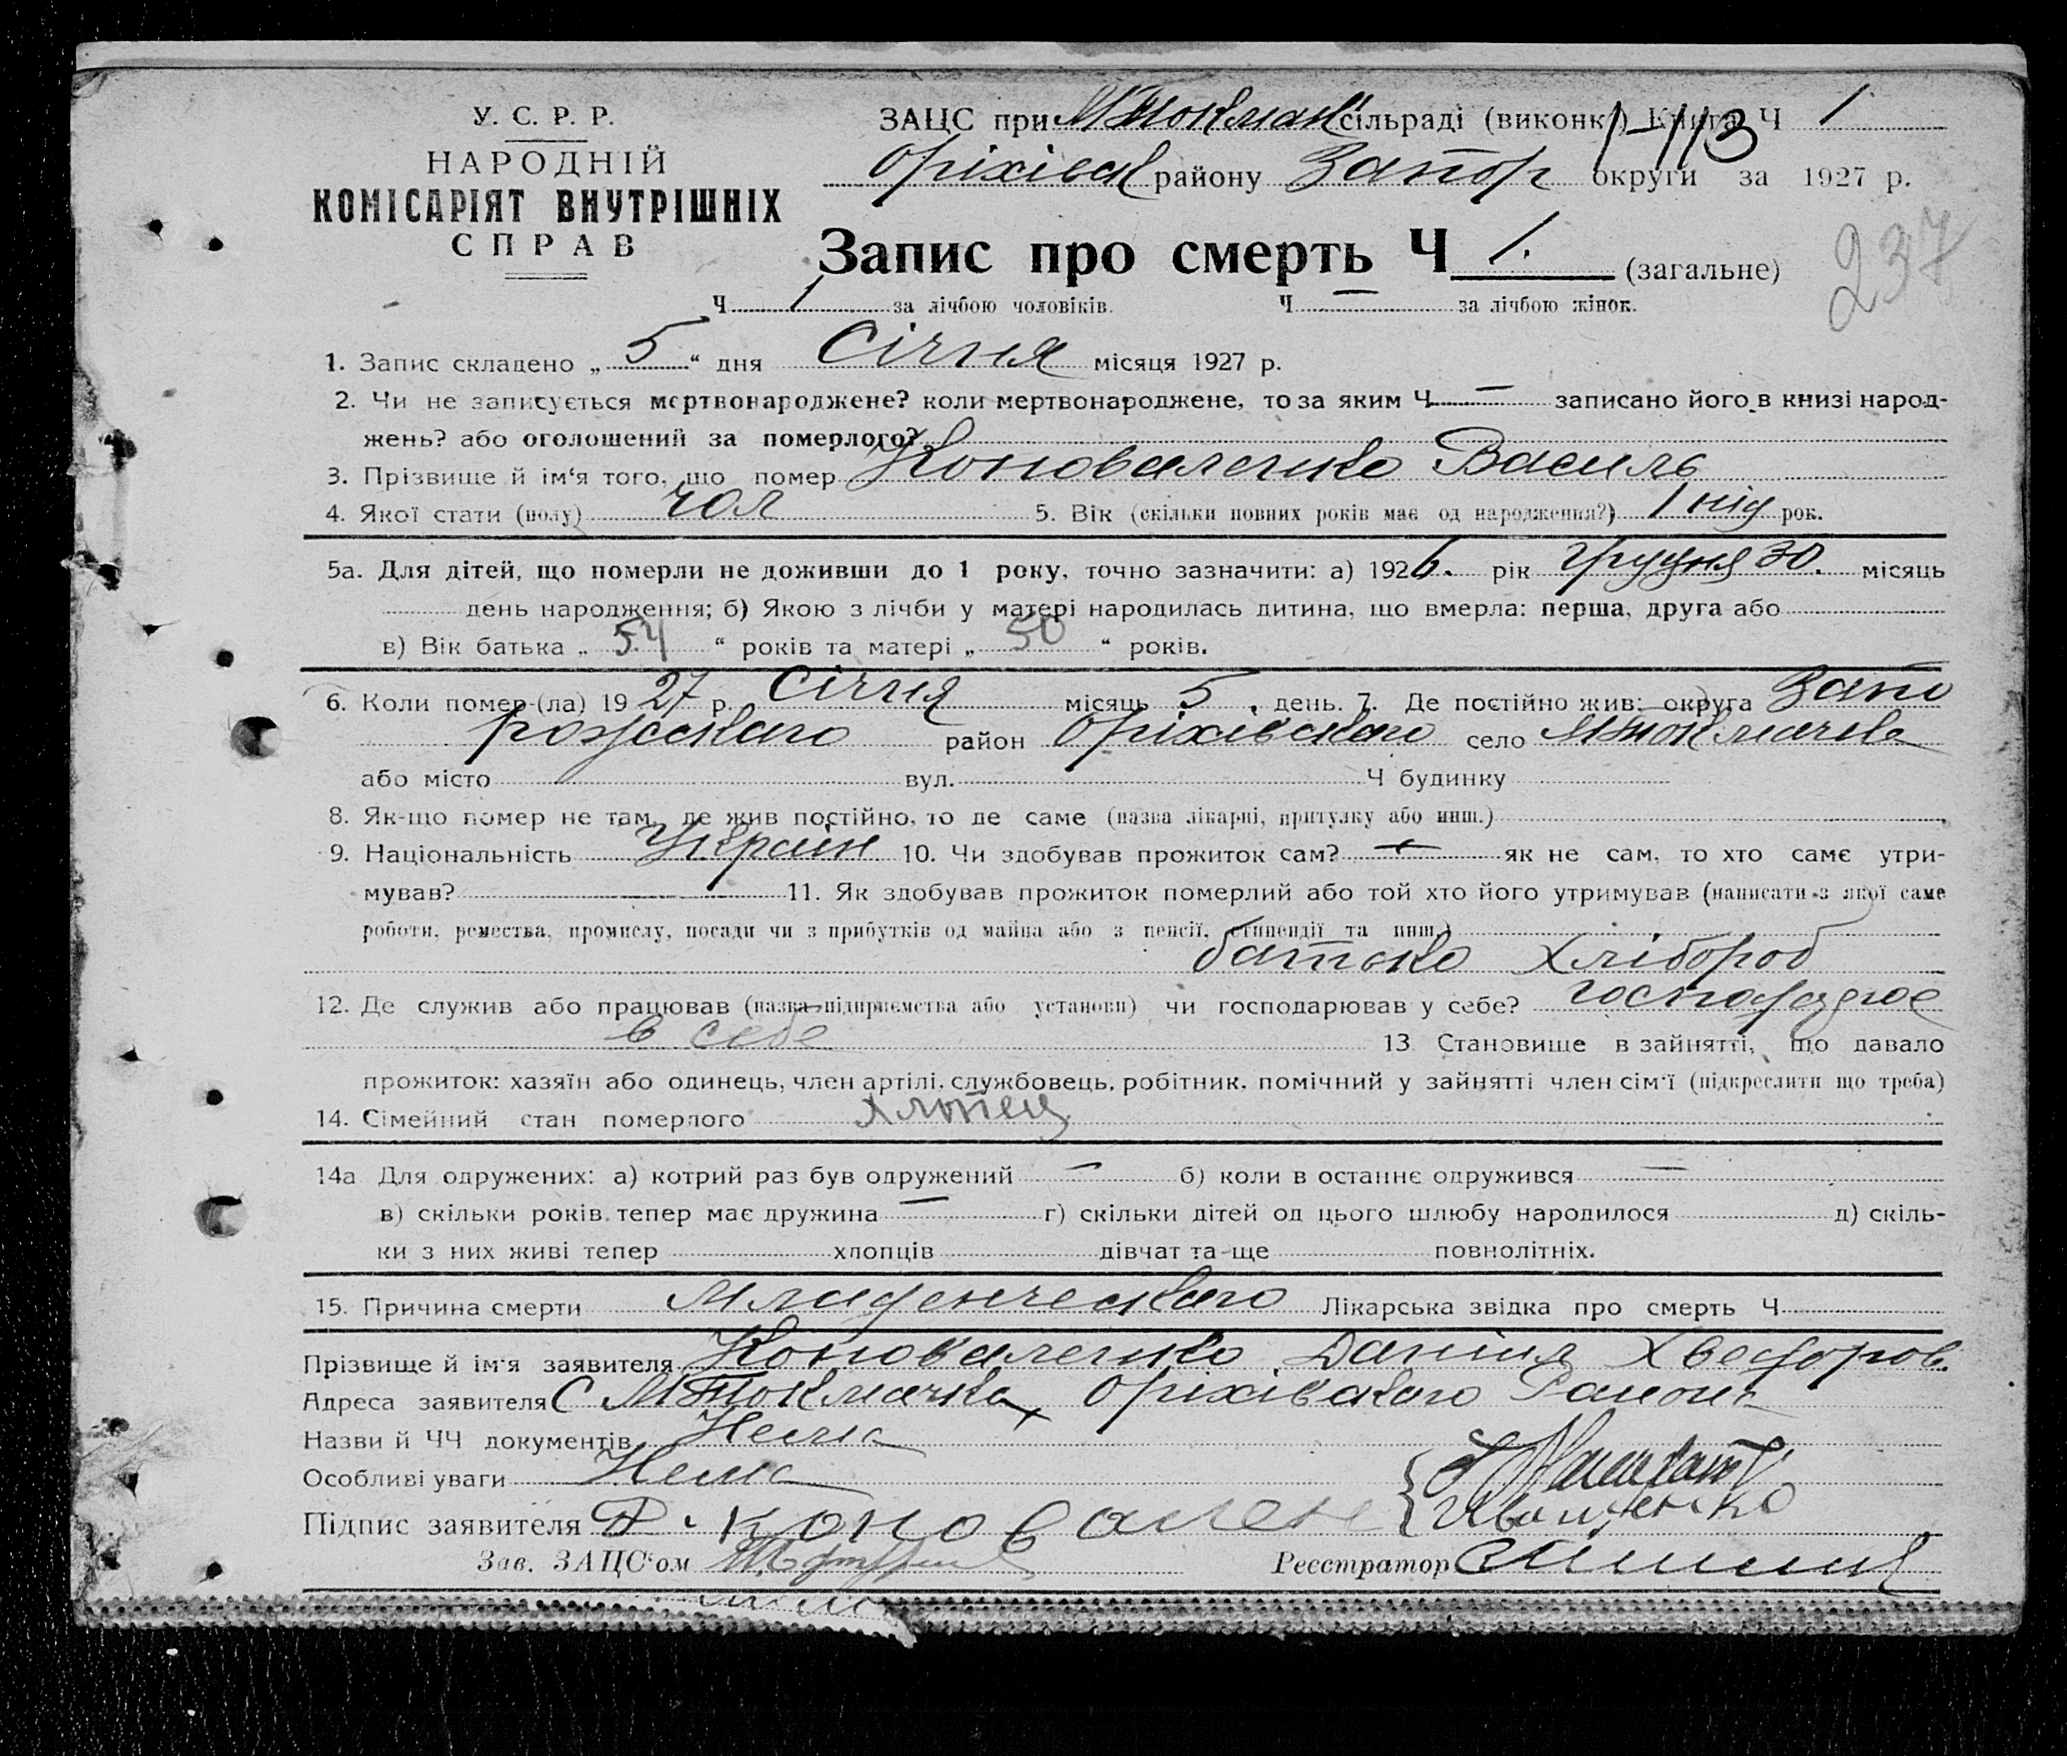 У. С. Р. Р.
НАРОДНІЙ
КОМІСАРІЯТ ВНУТРІШНІХ
СПРАВ
ЗАЦС при МТокмач сільраді (виконк.) Книга Ч 1
1-113
Оріхівськ району Запор округи за 1927 р.
Запис про смерть Ч 1. (загальне)
237
Ч 1 за лічбою чоловіків. Ч — за лічбою жінок.
1. Запис складено „ 5 “ дня Січня місяця 1927 р.
2. Чи не записується мертвонароджене? коли мертвонароджене, то за яким Ч — записано його в книзі народ-
жень? або оголошений за померлого?
3. Прізвище й ім‘я того, що помер Коноваленко Василь
4. Якої стати (полу) чол 5. Вік (скільки повних років має од народження?) 1 нід рок.
5а. Для дітей, що померли не доживши до 1 року, точно зазначити: а) 1926. рік грудня 30. місяць
день народження; б) Якою з лічби у матері народилась дитина, що вмерла: перша, друга або
в) Вік батька „ 54 “ років та матері „ 50 “ років.
6. Коли помер-(ла) 1927 р. Січня місяць 5 день. 7. Де постійно жив: округа Запо
рожського район Оріхівського село МТокмачка
або місто вул. Ч будинку
8. Як-що помер не там, де жив постійно, то де саме (назва лікарні, притулку або инш.)
9. Національність Україн 10. Чи здобував прожиток сам? — як не сам, то хто саме утри-
мував? 11. Як здобував прожиток померлий або той хто його утримував (написати з якої саме
роботи, ремества, промислу, посади чи з прибутків од майна або з пенсії, стипендії та инш.)
батько хлібороб
12. Де служив або працював (назва підприємства або установи) чи господарював у себе? господарює
в себе 13 Становище в зайнятті, що давало
прожиток: хазяїн або одинець, член артілі, службовець, робітник, помічний у зайнятті член сім‘ї (підкреслити що треба)
14. Сімейний стан померлого хлопец
14а Для одружених: а) котрий раз був одружений — б) коли в останнє одружився —
в) скільки років тепер має дружина — г) скільки дітей од цього шлюбу народилося д) скіль-
ки з них живі тепер хлопців дівчат та ще повнолітніх.
15. Причина смерти Младенческаго Лікарська звідка про смерть Ч
Прізвище й ім‘я заявителя Коноваленко Даніил Хведоров.
Адреса заявителя С МТокмачка, Оріхівського Району
Назви й ЧЧ документів Нема
Особливі уваги Нема
Підпис заявителя Д. Коновален
Іващенко
Зав. ЗАЦС‘ом Реєстратор